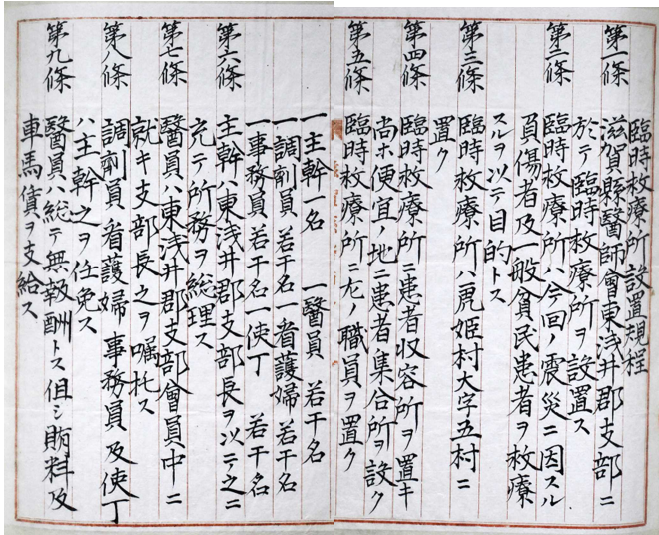 臨時救療所設置規程
第一條 滋賀縣醫師會東浅井郡支部ニ
於テ臨時救療所ヲ設置ス
第二條 臨時救療所ハ今回ノ震災ニ因スル
負傷者及一般貧民患者ヲ救療
スルヲ以テ目的トス
第三條 臨時救療所ハ虎姫村大字五村ニ
置ク
第四條 臨時救療所ニ患者収容所ヲ置キ
尚ホ便宜ノ地ニ患者集合所ヲ設ク
第五條 臨時救療所ニ左ノ職員ヲ置ク
一主幹一名 一醫員 若干名
一調剤員 若干名 一看護婦 若干名
一事務員 若干名 一使丁 若干名
第六條 主幹ハ東浅井郡支部長ヲ以テ之ニ
充テ所務ヲ総理ス
第七條 醫員ハ東浅井郡支部會員中ニ
就キ支部長之ヲ嘱托ス
第八條 調剤員、看護婦、事務員及使丁
ハ主幹之ヲ任免ス
第九條 醫員ハ総テ無報酬トス但シ賄料及
車馬賃ヲ支給ス